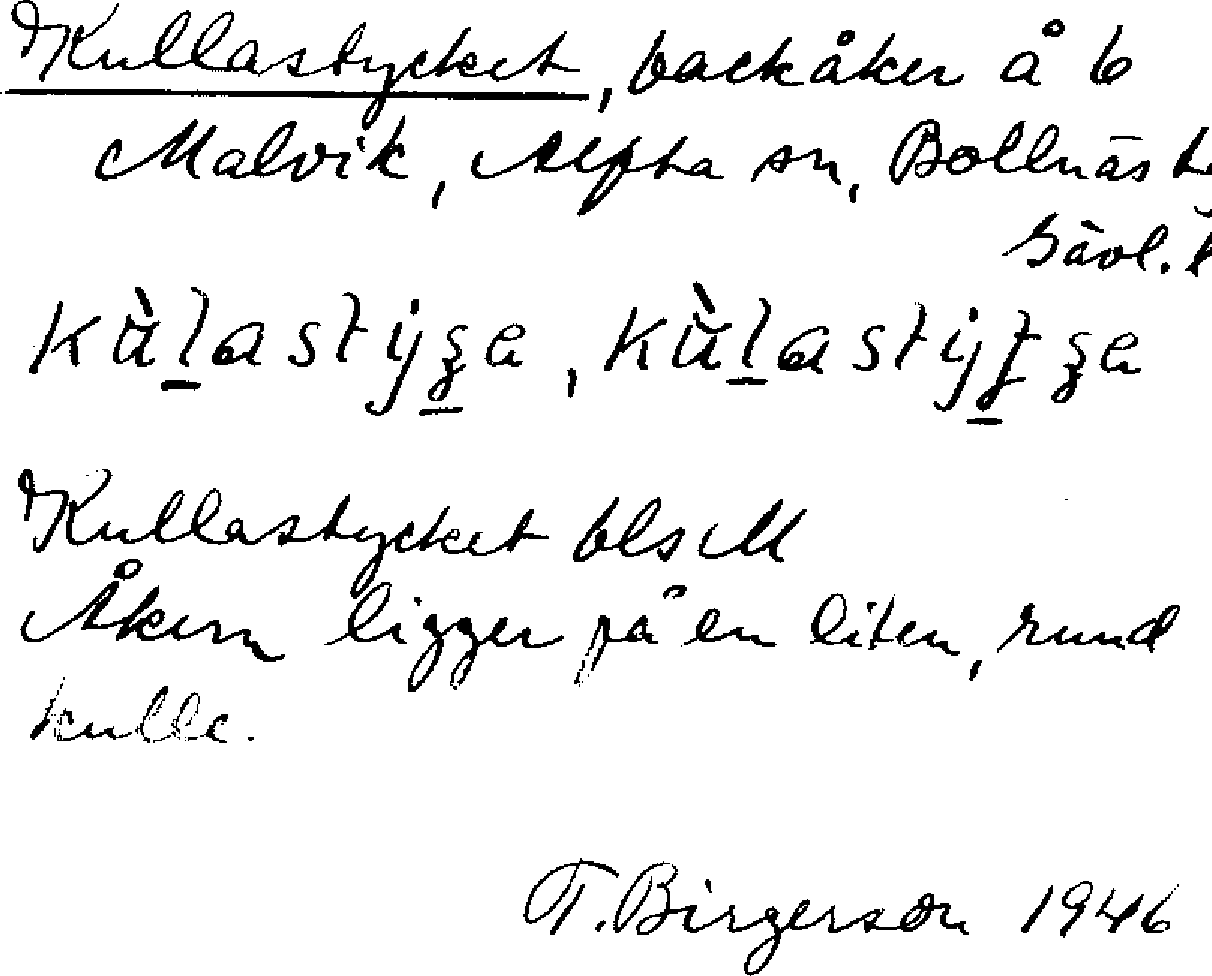 Kullastycket, backåker å 6
Malvik, Alfta sn, Bollnäs
Gävl. l
Kullastycket bls M
Åkern ligger på en liten, rund
kulle.
T. Birgerson 1946